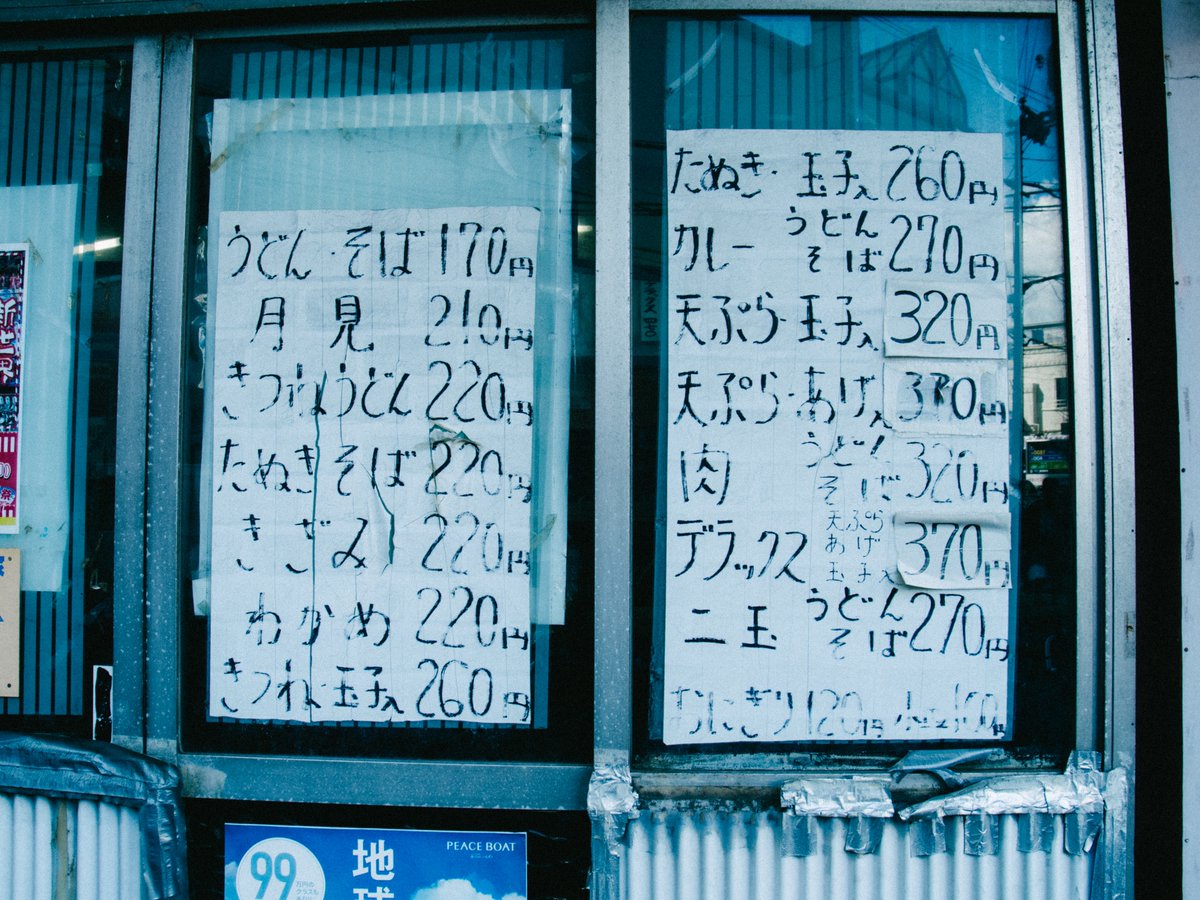 うどん・そば 170円
月見 210円
きつねうどん 220円
たぬきそば 220円
きざみ 220円
わかめ 220円
きつね・玉子入 260円
たぬき・玉子入 260円
カレー うどん そば 270円
天ぷら・玉子入 320円
天ぷら・あげ入 330円
肉 うどん そば 320円
デラックス 天ぷら あげ 玉子入 370円
二玉 うどん そば 270円
おにぎり 120円 100円
PEACE BOAT
99
地球